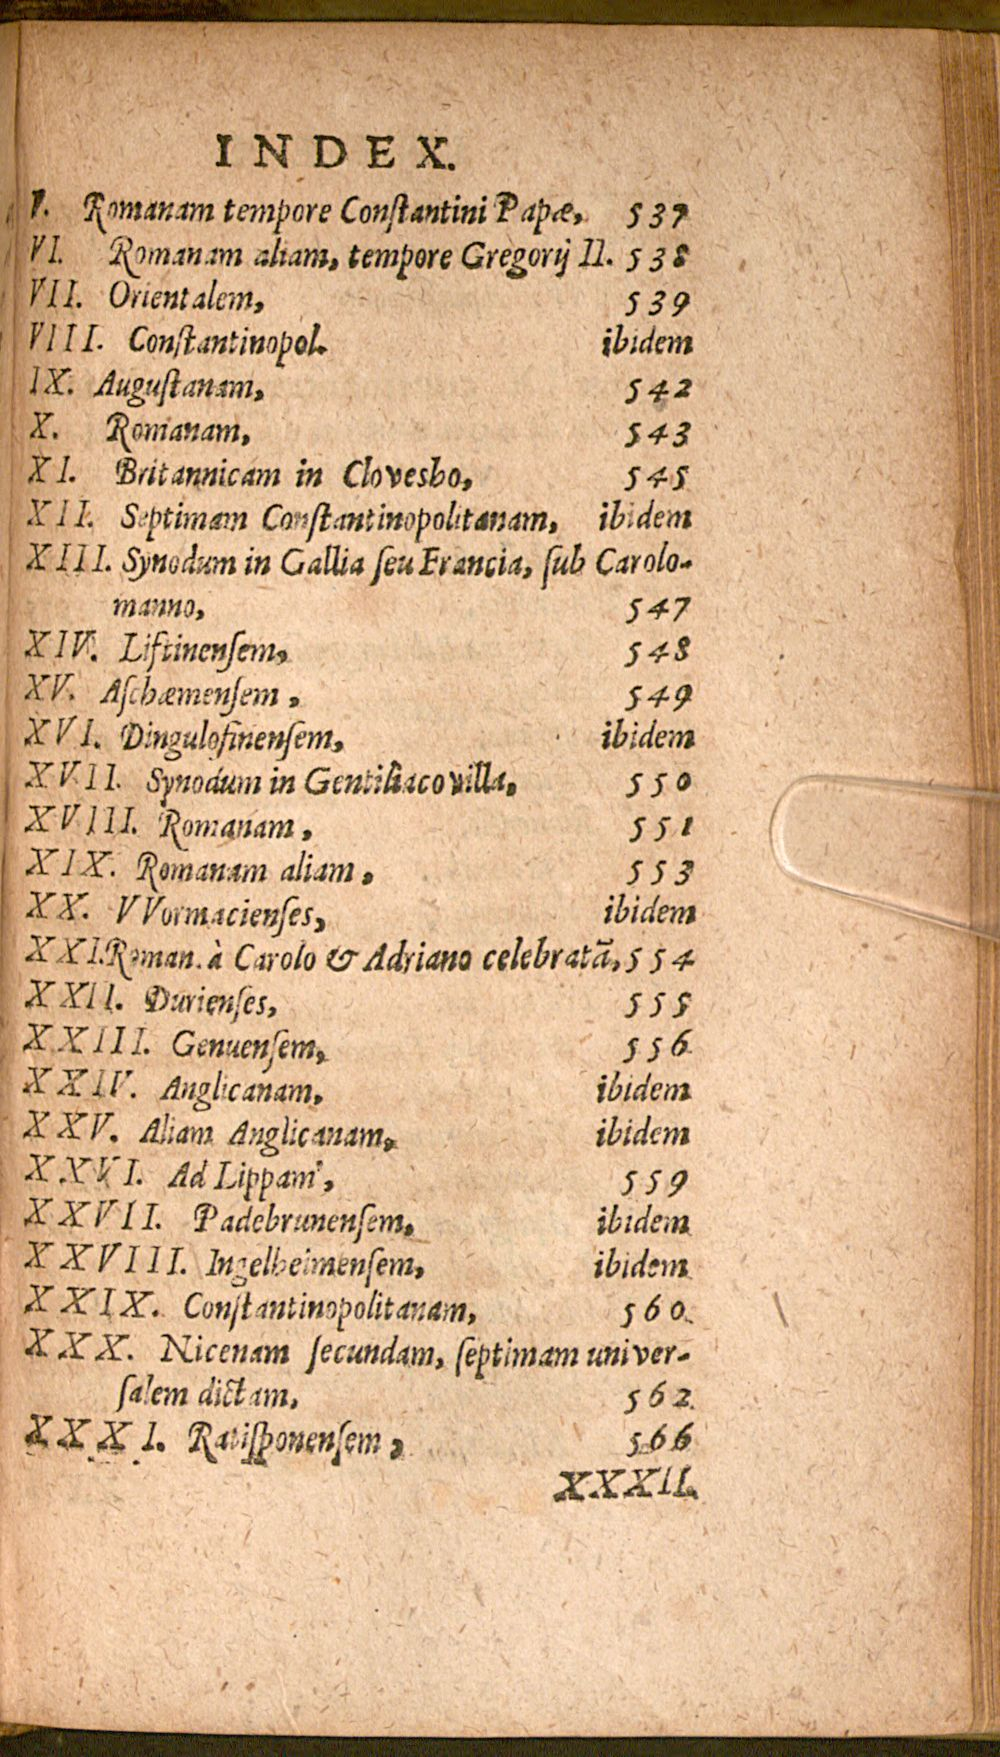 INDEX.
V. Romanam tempore Conſtantini Papæ, 537
VI. Romanam aliam, tempore Gregorij II. 538
VII. Orientalem, 539
VIII. Conſtantinopol. ibidem
IX. Auguſtanam, 542
X. Romanam, 543
XI. Britannicam in Clovesho, 545
XII. Septimam Conſtantinopolitanam, ibidem
XIII. Synodum in Gallia ſeu Francia, ſub Carolo-
manno, 547
XIV. Liſtinenſem, 548
XV. Aſchæmenſem, 549
XVI. Dingulofinenſem, ibidem
XVII. Synodum in Gentiliaco villa, 550
XVIII. Romanam, 551
XIX. Romanam aliam, 553
XX. VVormacienſes, ibidem
XXI. Roman. à Carolo & Adriano celebratā, 554
XXII. Durienſes, 555
XXIII. Genuenſem, 556
XXIV. Anglicanam, ibidem
XXV. Aliam Anglicanam, ibidem
XXVI. Ad Lippam, 559
XXVII. Padebrunenſem, ibidem
XXVIII. Ingelheimenſem, ibidem
XXIX. Conſtantinopolitanam, 560
XXX. Nicenam ſecundam, ſeptimam univer-
ſalem dictam, 562
XXXI. Ratiſponenſem, 566
XXXII.